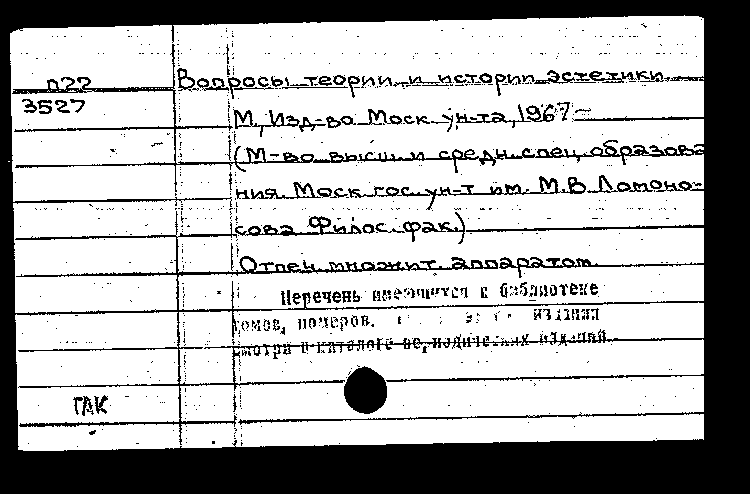 п22 Вопросы теории и истории эстетики
3527
М, Изд-во Моск ун-та, 1967-
(М-во высш и средн спец образова
ния. Моск гос. ун-т им. М.В Ломоно-
сова Филос. фак.)
Отпеч множит. аппаратом
Перечень имеющихся в библиотеке
томов, номеров. издания
смотри в каталоге периодических изданий.
ГАК